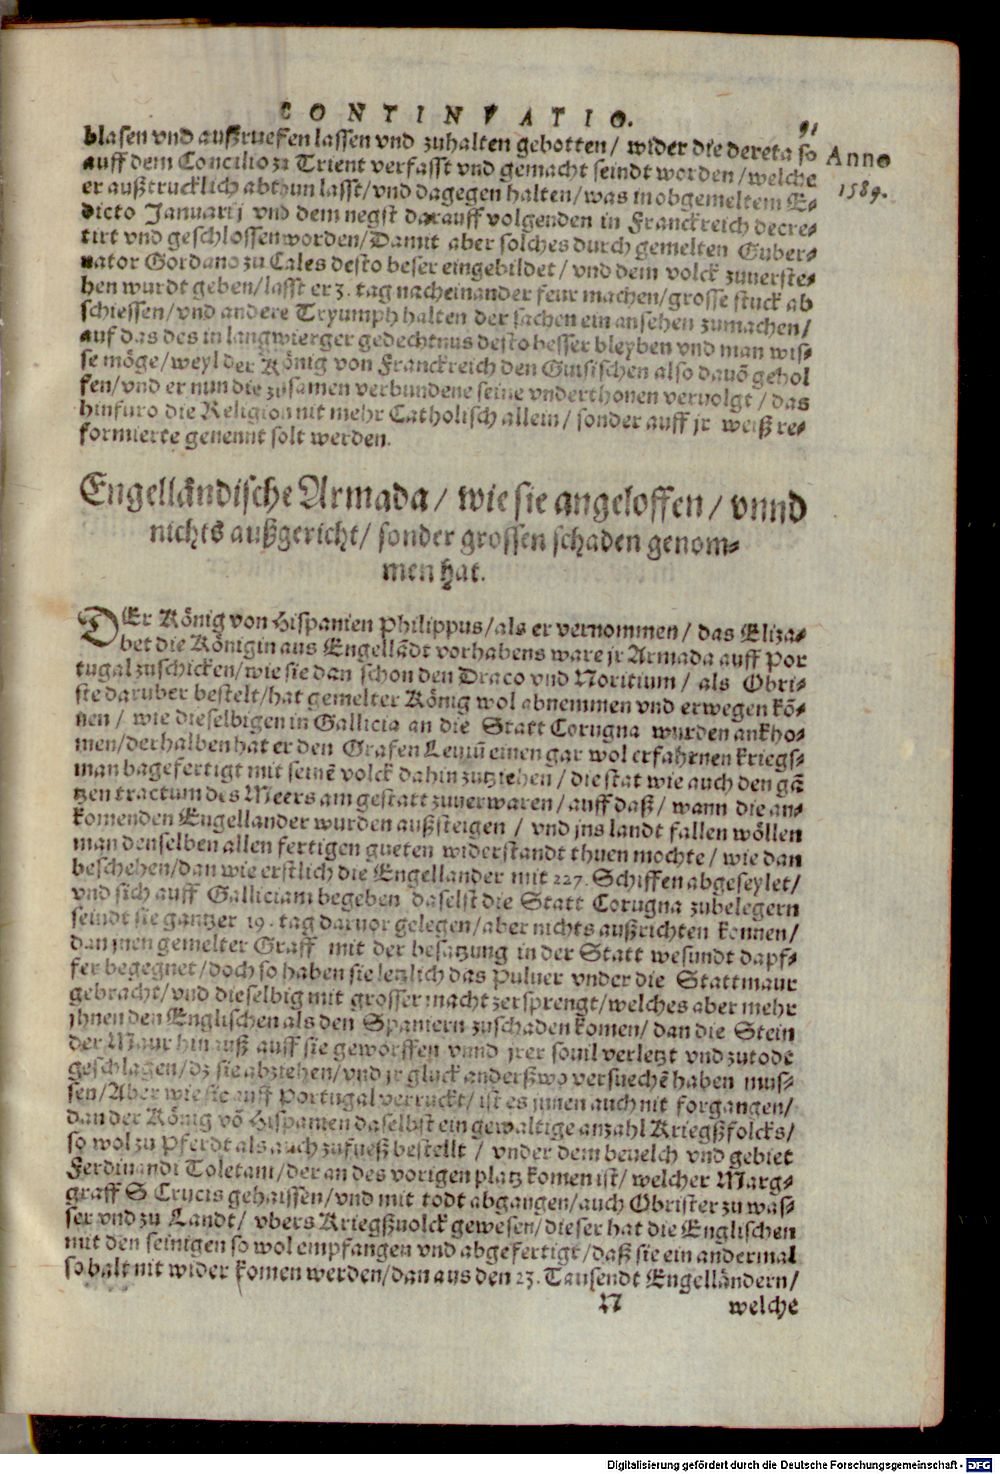 CONTINVATIO.
91
blasen vnd außruefen lassen vnd zuhalten gebotten / wider die decreta so
Anno
1589.
auff dem Concilio zu Trient verfasst vnd gemacht seindt worden / welche
er außtrucklich abthun lasst / vnd dagegen halten / was in obgemeltem E-
dicto Januarij vnd dem negst darauff volgenden in Franckreich decre-
tirt vnd geschlossen worden / Damit aber solches durch gemelten Guber-
nator Gordano zu Cales desto beser eingebildet / vnd dem volck zuuerste-
hen wurdt geben / lasst er 3. tag nacheinander feur machen / grosse stuck ab
schiessen / vnd andere Tryumph halten der sachen ein ansehen zumachen /
auf das des in langwierger gedechtnus desto besser bleyben vnd man wis-
se möge / weyl der König von Franckreich den Guisischen also dauō gehol
fen / vnd er nun die zusamen verbundene seine vnderthonen veruolgt / das
hinfuro die Religion nit mehr Catholisch allein / sonder auff jr weiß re-
formierte genennt solt werden.
Engelländische Armada / wie sie angeloffen / vnnd
nichts außgericht / sonder grossen schaden genom-
men hat.
DEr König von Hispanien Philippus / als er vernommen / das Eliza-
bet die Königin aus Engellādt vorhabens ware jr Armada auff Por
tugal zuschicken / wie sie dan schon den Draco vnd Noritium / als Obri-
ste daruber bestelt / hat gemelter König wol abnemmen vnd erwegen kö-
nen / wie dieselbigen in Gallicia an die Statt Corugna wurden ankho-
men / derhalben hat er den Grafen Lemū einen gar wol erfahrnen kriegs-
man bagefertigt mit seinē volck dahin zutziehen / die stat wie auch den gā
tzen tractum des Meers am gestatt zuuerwaren / auff daß / wann die an-
komenden Engellander wurden außsteigen / vnd jns landt fallen wöllen
man denselben allen fertigen gueten widerstandt thuen mochte / wie dan
beschehen / dan wie erstlich die Engellander mit 227. Schiffen abgeseylet /
vnd sich auff Galliciam begeben daselst die Statt Corugna zubelegern
seindt sie gantzer 19. tag daruor gelegen / aber nichts außrichten kennen /
dan jnen gemelter Graff mit der besatzung in der Statt wesundt dapf-
fer begegnet / doch so haben sie letzlich das Puluer vnder die Stattmaur
gebracht / vnd dieselbig mit grosser macht zersprengt / welches aber mehr
jhnen den Englischen als den Spaniern zuschaden komen / dan die Stein
der Maur hinauß auff sie geworffen vnnd jrer souil verletzt vnd zutode
geschlagen / dz sie abziehen / vnd jr gluck anderßwo versuechē haben mus-
sen / Aber wie sie auff Portugal verruckt / ist es jnnen auch nit forgangen /
dan der König vō Hispanien daselbst ein gewaltige anzahl Kriegßfolcks /
so wol zu Pferdt als auch zufueß bestellt / vnder dem beuelch vnd gebiet
Ferdinandi Toletani / der an des vorigen platz komen ist / welcher Marg-
graff S Crucis gehaissen / vnd mit todt abgangen / auch Obrister zu was-
ser vnd zu Landt / vbers Kriegßuolck gewesen / dieser hat die Englischen
mit den seinigen so wol empfangen vnd abgefertigt / daß sie ein andermal
so balt nit wider komen werden / dan aus den 23. Tausendt Engelländern /
N welche
Digitalisierung gefördert durch die Deutsche Forschungsgemeinschaft - DFG